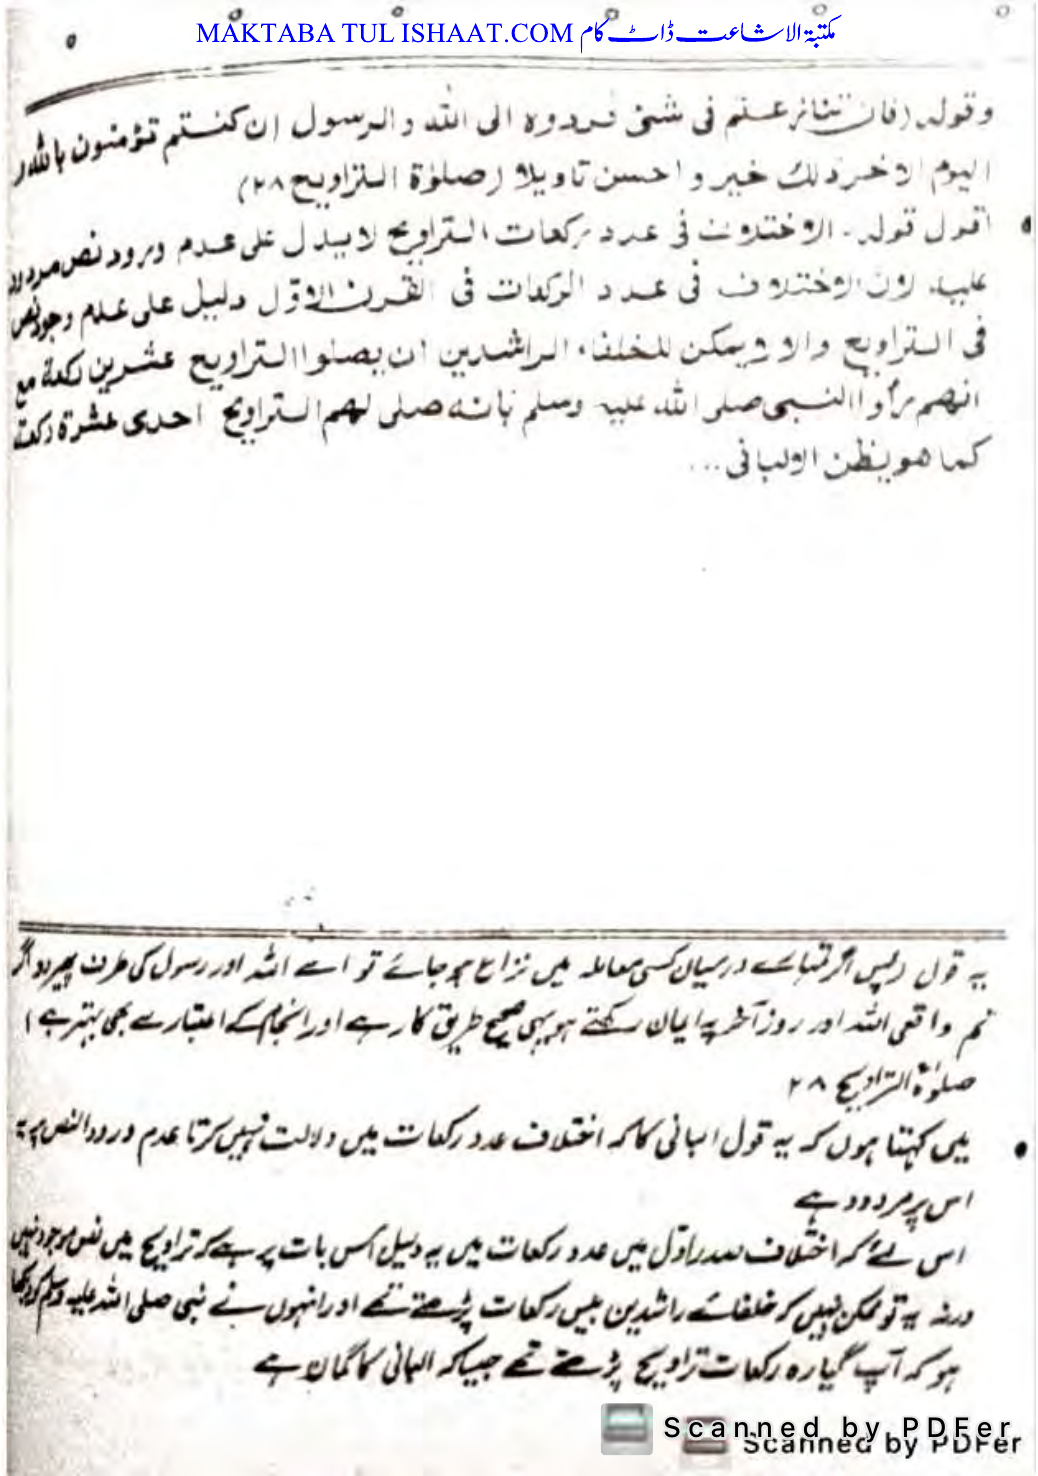 MAKTABA TUL ISHAAT.COM مکتبۃ الاشاعت ڈاٹ کام
وقوله (فان تنازعتم فی شئ فردوه الی الله والرسول ان کنتم تؤمنون بالله و
الیوم الاخر ذلك خیر و احسن تاویلا (صلوٰة التراویح ۲۸)
اقول قوله۔ الاختلاف فی عدد رکعات التراویح لا یدل علی عدم ورود نص مردود
علیه لان الاختلاف فی عدد الرکعات فی القرن الاول دلیل علی عدم وجود نص
فی التراویح والا لا یمکن للخلفاء الراشدین ان یصلوا التراویح عشرین رکعة مع
انهم رأوا النبی صلی الله علیه وسلم بانه صلی لهم التراویح احدی عشرة رکعة
کما هو یظن الالبانی...
یہ قول (پس اگر تمہارے درمیان کسی معاملہ میں نزاع ہو جائے تو اسے اللہ اور رسول کی طرف پھیر دو اگر
تم واقعی اللہ اور روز آخر پہ ایمان رکھتے ہو یہی صحیح طریق کار ہے اور انجام کے اعتبار سے بھی بہتر ہے)
صلوٰة التراویح ۲۸
میں کہتا ہوں کہ یہ قول البانی کا کہ اختلاف عدد رکعات میں دلالت نہیں کرتا عدم ورود النص پر یہ
اس پر مردود ہے
اس لئے کہ اختلاف صدر اول میں عدد رکعات میں یہ دلیل اس بات پر ہے کہ تراویح میں نص موجود نہیں
ورنہ یہ تو ممکن نہیں کہ خلفائے راشدین بیس رکعات پڑھتے تھے اور انہوں نے نبی صلی اللہ علیہ وسلم کو دیکھا
ہو کہ آپ گیارہ رکعات تراویح پڑھتے تھے جیسا کہ البانی کا گمان ہے
Scanned by PDFer
Scanned by PDFer